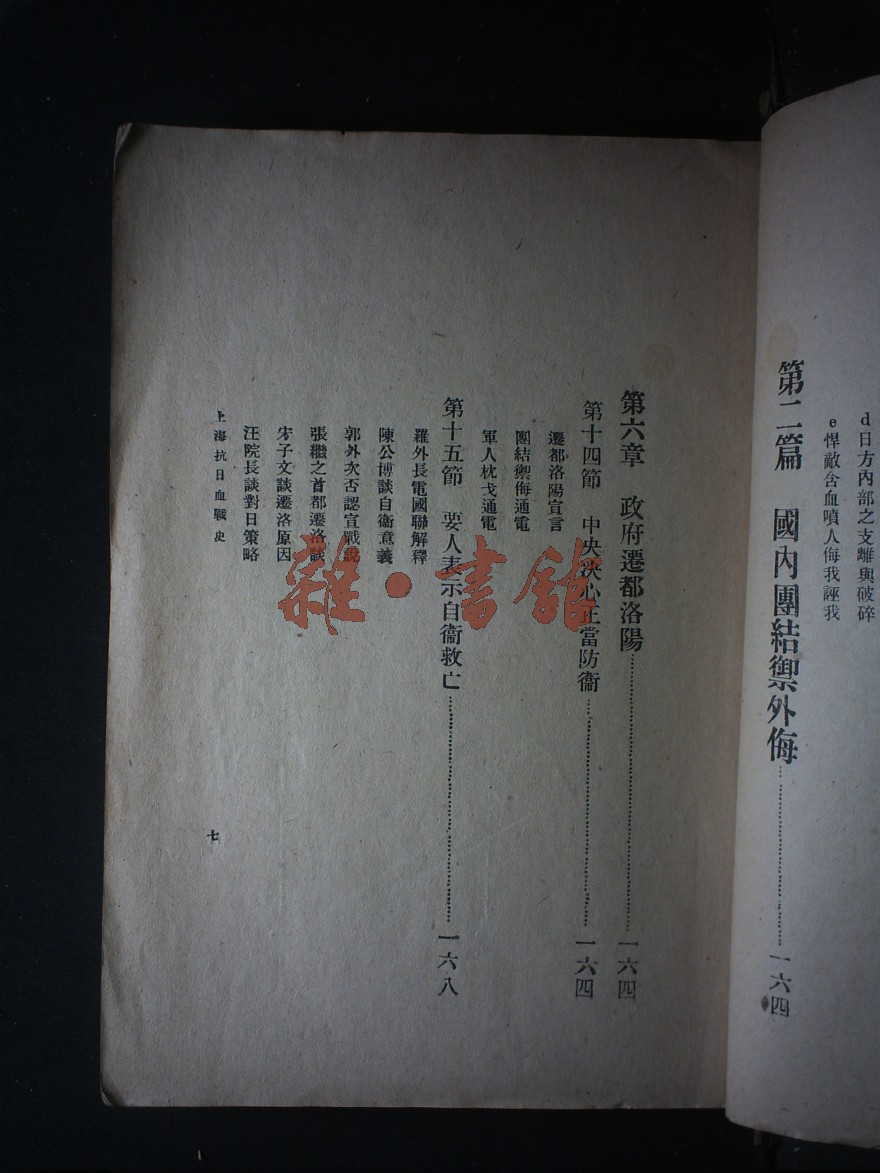 d日方內部之支離與破碎
e悍敵含血噴人侮我誣我
第二篇　國內團結禦外侮……一六四
第六章　政府遷都洛陽……一六四
第十四節　中央決心正當防衞……一六四
遷都洛陽宣言
團結禦侮通電
軍人枕戈通電
第十五節　要人表示自衞救亡……一六八
羅外長電國聯解釋
陳公博談自衞意義
郭外次否認宣戰說
張繼之首都遷洛談
宋子文談遷洛原因
汪院長談對日策略
上海抗日血戰史
七
雜·書館